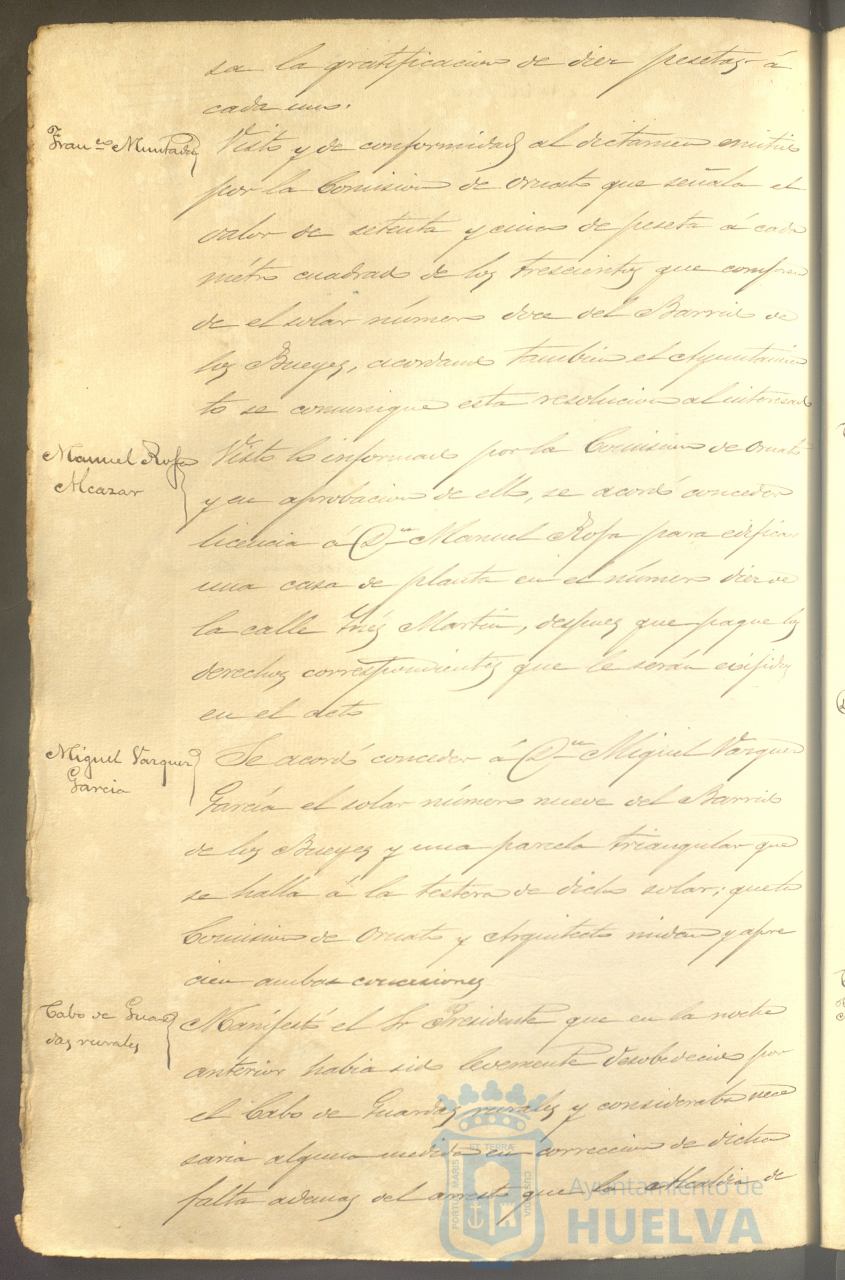 sa la gratificacion de diez pesetas á
cada uno.
Fran.co Muntada
Visto y de conformidad al dictamen emitido
por la Comision de Ornato que señala el
valor de setenta y cinco de peseta á cada
métro cuadrado de los trescientos que compren
de el solar número doce del Barrio de
los Bueyes, acordando tambien el Ayuntamien
to se comunique esta resolucion al interesado
Manuel Rofa
Alcazar
Visto lo informado por la Comision de Ornato
y en aprobacion de ello, se acordó conceder
licencia á Dn Manuel Rofa para edificar
una casa de planta en el número diez de
la calle Inés Martin, despues que pague los
derechos correspondientes que le serán exijidos
en el acto
Miguel Vazquez
Garcia
Se acordó conceder á Dn Miguel Vazquez
García el solar número nueve del Barrio
de los Bueyes y una parcela triangular que
se halla á la testera de dicho solar; que la
Comision de Ornato y Arquitecto midan y apre
cien ambas concesiones
Cabo de Guar
das rurales
Manifestó el Sr Presidente que en la noche
anterior habia sido levemente desobedecido por
el Cabo de Guardas rurales y consideraba nece
saria alguna medida en correccion de dicha
falta ademas del arresto que la Alcaldia de
PORTUS MARIS ET TERRÆ CUSTODIA
Ayuntamiento de
HUELVA